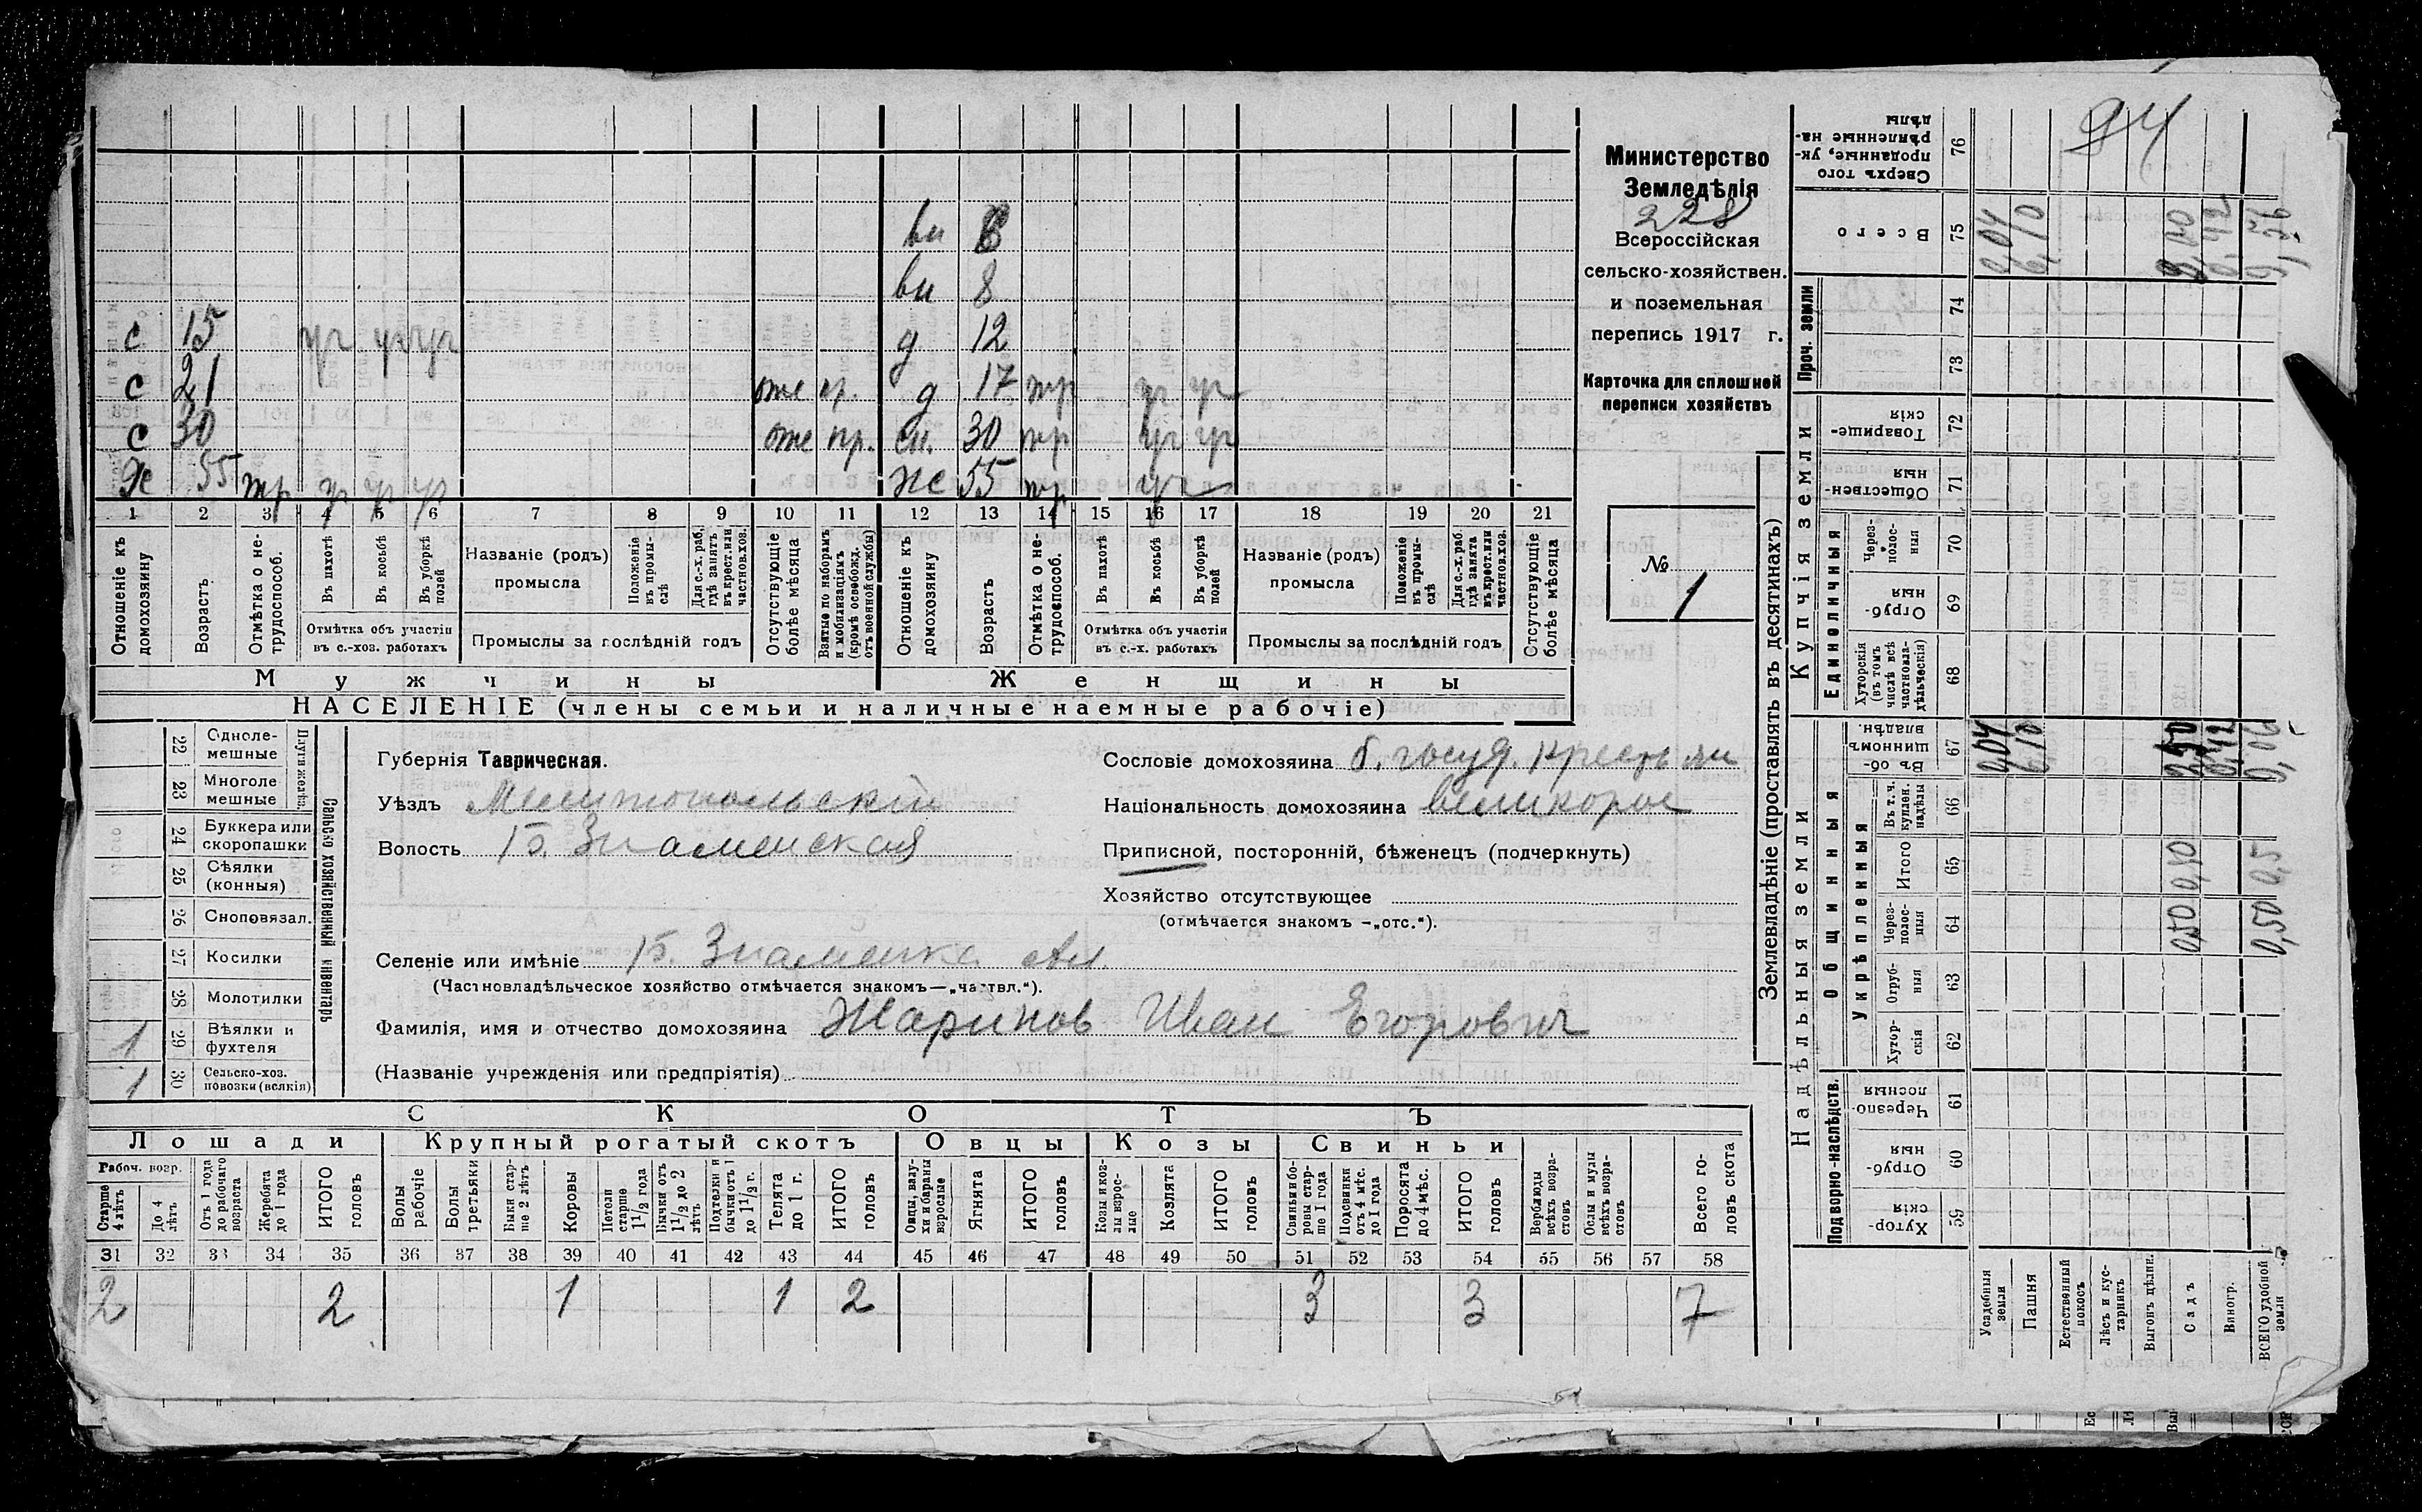 94
Министерство
Земледѣлія
228
Всероссійская
сельско-хозяйствен.
и поземельная
перепись 1917 г.
Карточка для сплошной
переписи хозяйствъ
№
1
вн 8
с 15 уч уч уч д 12
с 21 оте пр. д 17 тр уч уч
с 30 оте пр. сн. 30 тр уч уч
Х 55 тр уч уч уч же 55 тр уч
1 2 3 4 5 6 7 8 9 10 11 12 13 14 15 16 17 18 19 20 21
Отношеніе къ домохозяину
Возрастъ
Отмѣтка о нетрудоспособ.
Въ пахотѣ
Въ косьбѣ
Въ уборкѣ полей
Отмѣтка объ участіи въ с.-хоз. работахъ
Названіе (родъ) промысла
Положеніе въ промыслѣ
Для с.-х. раб. гдѣ занятъ въ крест. или частнов. хоз.
Промыслы за послѣдній годъ
Отсутствующіе болѣе мѣсяца
Взятые по наборамъ и мобилизаціямъ (кромѣ освобожд. отъ военной службы)
Отношеніе къ домохозяину
Возрастъ
Отмѣтка о нетрудоспособ.
Въ пахотѣ
Въ косьбѣ
Въ уборкѣ полей
Отмѣтка объ участіи въ с.-х. работахъ
Названіе (родъ) промысла
Положеніе въ промыслѣ
Для с.-х. раб. гдѣ занята въ крест. или частнов. хоз.
Промыслы за послѣдній годъ
Отсутствующіе болѣе мѣсяца
Мужчины Женщины
НАСЕЛЕНІЕ (члены семьи и наличные наемные рабочіе)
Сельско хозяйственный инвентарь
Плуги желѣз.
22 Однолемешные
23 Многолемешные
24 Буккера или скоропашки
25 Сѣялки (конныя)
26 Сноповязал.
27 Косилки
28 Молотилки
1 29 Вѣялки и фухтеля
1 30 Сельско-хоз. повозки (всякія)
Губернія Таврическая.
Уѣздъ Мелитопольскій
Волость Б. Знаменская
Селеніе или имѣніе Б. Знаменка
(Частновладѣльческое хозяйство отмѣчается знакомъ—„частвл.“).
Фамилія, имя и отчество домохозяина Жаринов Иван Егорович
(Названіе учрежденія или предпріятія)
Сословіе домохозяина б. госуд. крестьян
Національность домохозяина великорос
Приписной, посторонній, бѣженецъ (подчеркнуть)
Хозяйство отсутствующее
(отмѣчается знакомъ —„отс.“).
СКОТЪ
Лошади Крупный рогатый скотъ Овцы Козы Свиньи
Рабоч. возр.
Старше 4 лѣтъ
До 4 лѣтъ
Отъ 1 года до рабочаго возраста
Жеребята до 1 года
ИТОГО головъ
Волы рабочіе
Волы третьяки
Быки старше 2 лѣтъ
Коровы
Нетели старше 1½ года
Бычки отъ 1½ до 2 лѣтъ
Подтелки и бычки отъ 1 до 1½ г.
Телята до 1 г.
ИТОГО головъ
Овцы, валухи и бараны взрослые
Ягнята
ИТОГО головъ
Козы и козлы взрослые
Козлята
ИТОГО головъ
Свиньи боровы старше 1 года
Подсвинки отъ 4 мѣс. до 1 года
Поросята до 4 мѣс.
ИТОГО головъ
Верблюды всѣхъ возрастовъ
Ослы и мулы всѣхъ возрастовъ
Всего головъ скота
31 32 33 34 35 36 37 38 39 40 41 42 43 44 45 46 47 48 49 50 51 52 53 54 55 56 57 58
2 2 1 1 2 3 3 7
Землевладѣніе (проставлять въ десятинахъ)
Сверхъ того проданные, укрѣпленные надѣлы 76
Всего 75
Проч. земли 74 73
Купчія земли
Товарищескія 72
Общественныя 71
Единоличныя
Черезполосныя 70
Отрубныя 69
Хуторскія (въ томъ числѣ всѣ частновладѣльческія) 68
Надѣльныя земли
Общинныя
Въ общинномъ владѣн. 67
Укрѣпленныя
Въ т. ч. куплен. надѣлы 66
Итого 65
Черезполосныя 64
Отрубныя 63
Хуторскія 62
Подворно-наслѣдств.
Черезполосныя 61
Отрубныя 60
Хуторскія 59
Усадебныя земли
Пашня
Естественный покосъ
Лѣсъ и кустарникъ
Выгонъ цѣлин.
Садъ
Виногр.
ВСЕГО удобной земли
6,10
0,50
0,50 0,5